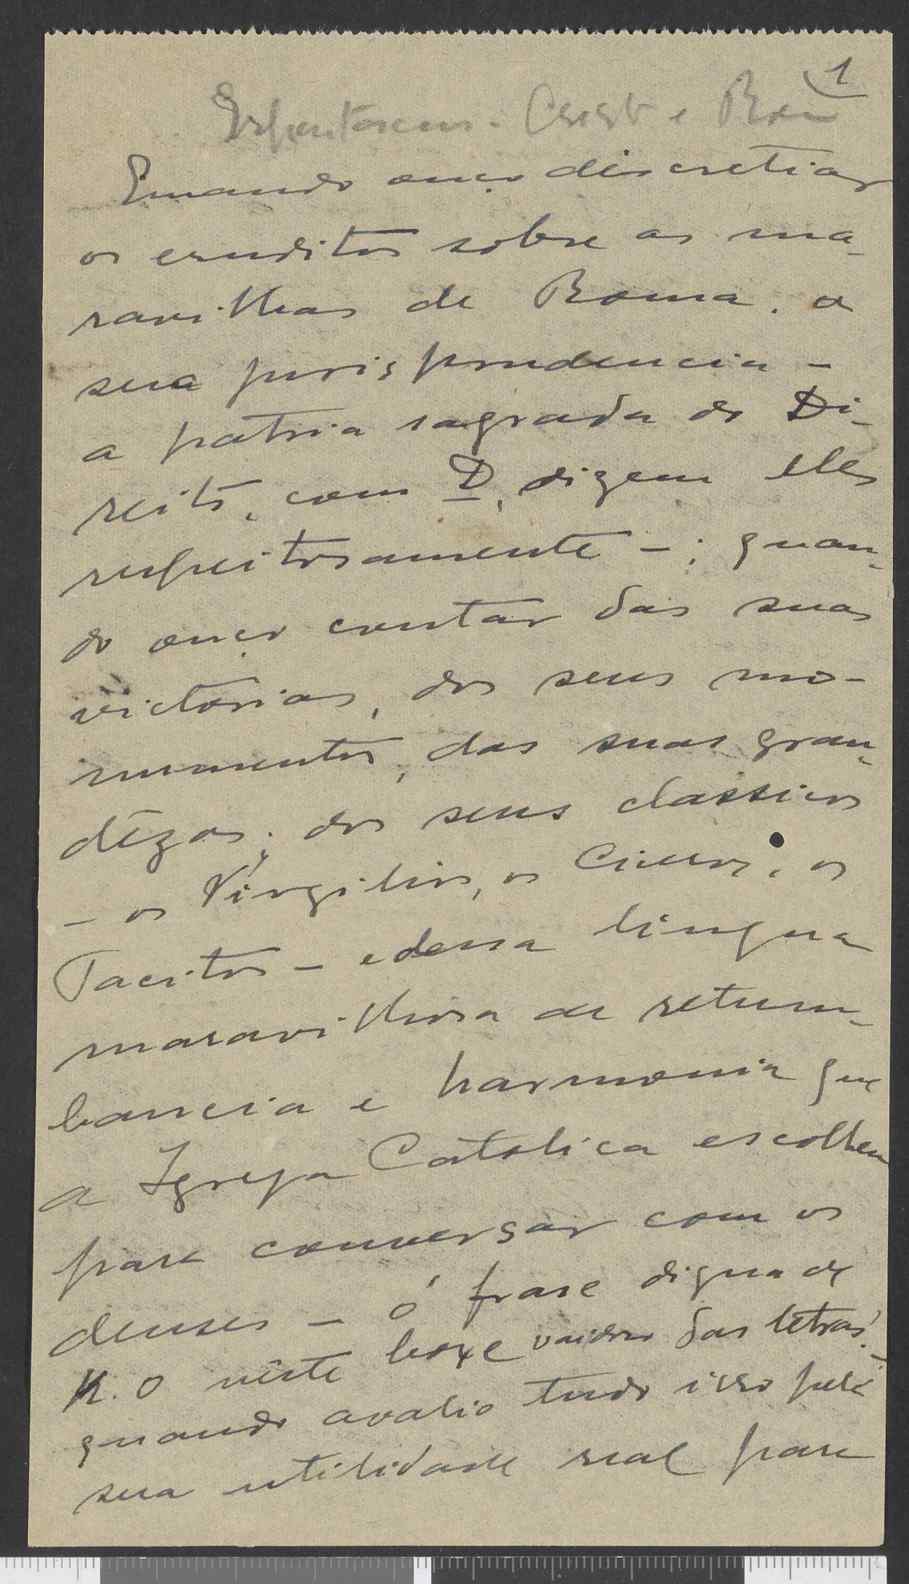 1
Cristo e Roma
Quando ouço discretiar
os eruditos sobre as ma-
ravilhas de Roma. a
sua jurisprudencia -
a pátria sagrada do Di-
reito, com D, dizem eles
respeitosamente - ; quan-
do ouço contar das suas
victórias, dos seus mo-
numentos, das suas gran-
dêzas; dos seus classicos
- os Virgilios, os Ciceros, os
Tacitos - e dessa lingua
maravilhosa de retum-
bancia e harmonia que
a Igreja Católica escolheu
para conversar com os
deuses - ó frase digna de
K.O neste boxe vaidoso das letras! -
quando avalio tudo isso pela
sua utilidade real para